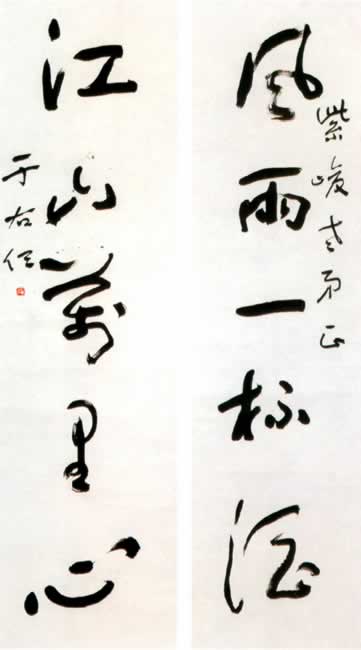 紫峻老弟正
風雨一杯酒
江山萬里心
于右任